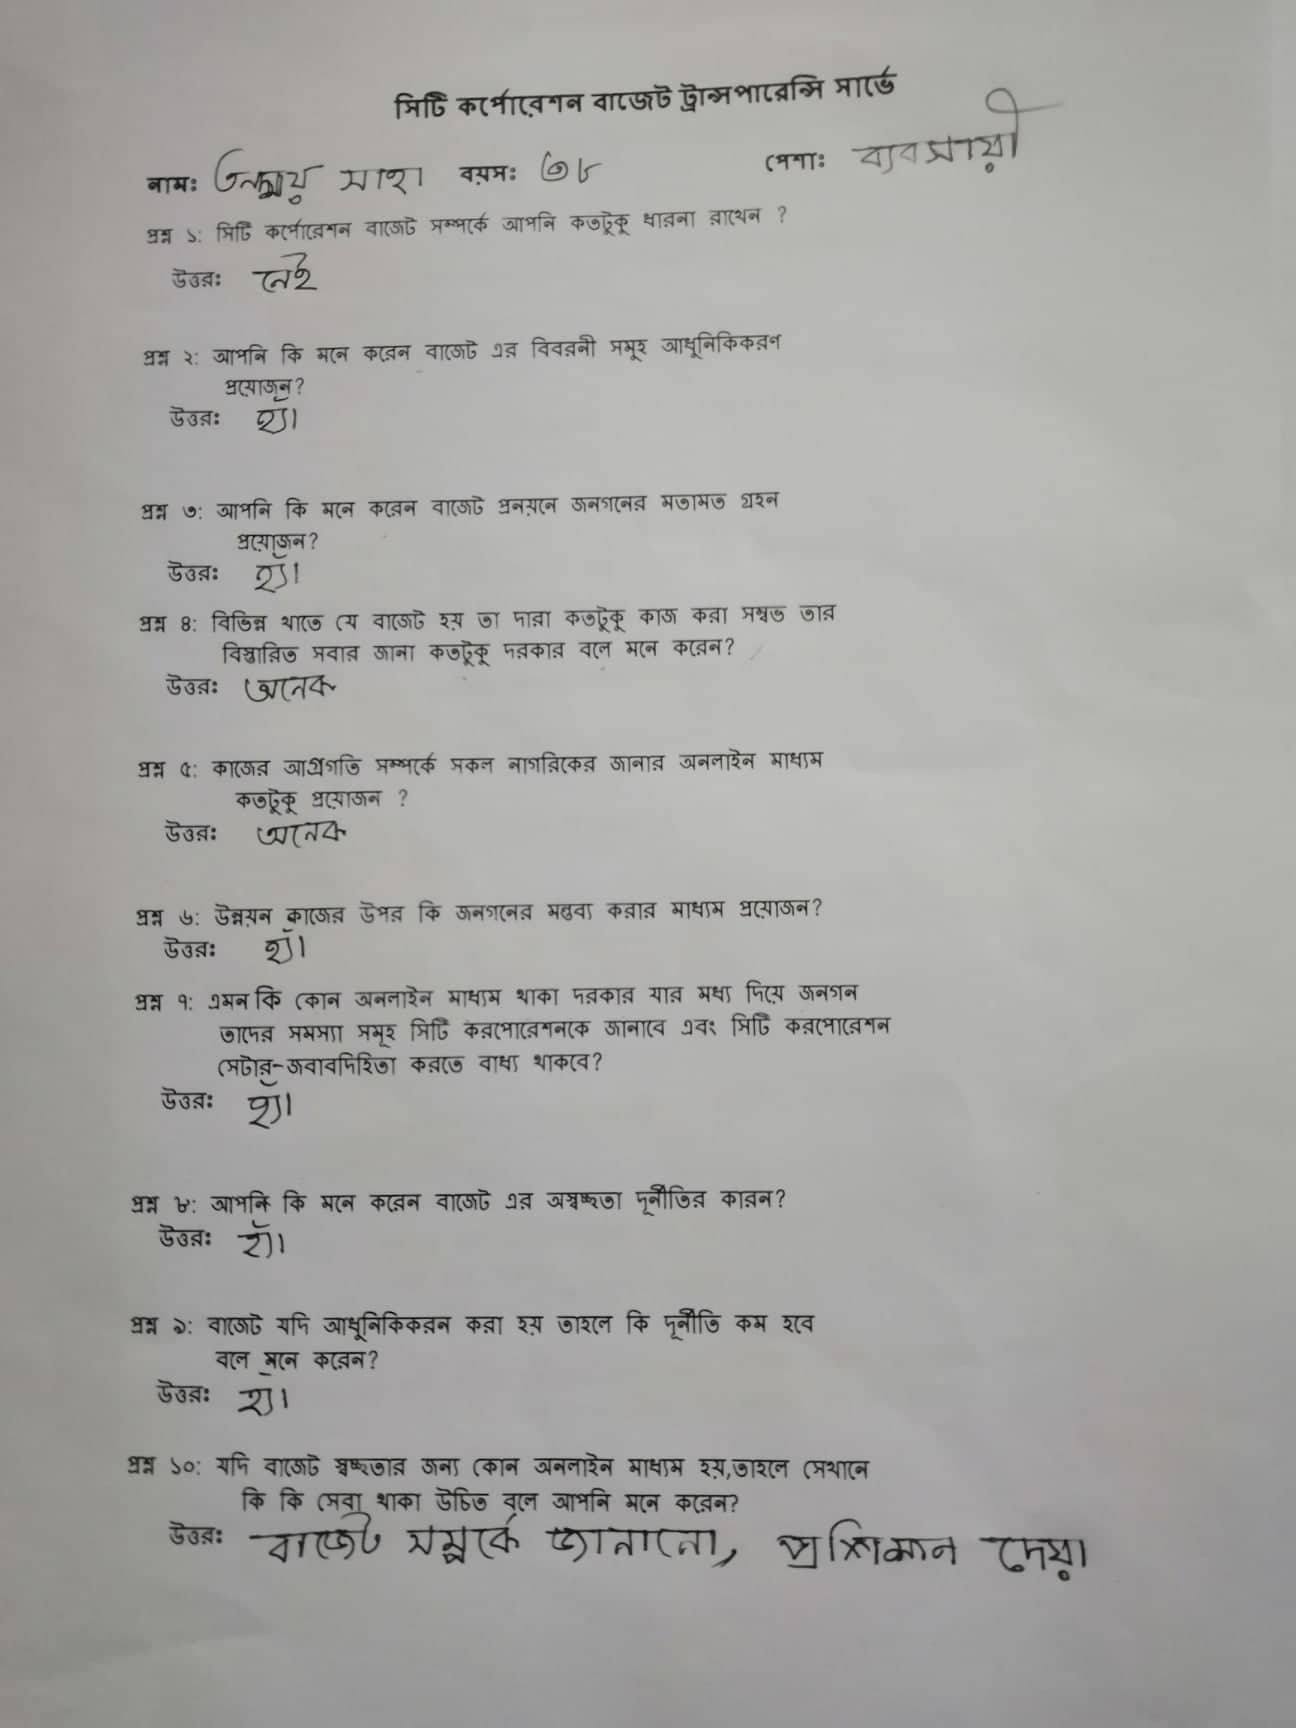 সিটি কর্পোরেশন বাজেট ট্রান্সপারেন্সি সার্ভে
নামঃ তন্ময় সাহা বয়সঃ ৩৮ পেশাঃ ব্যবসায়ী
প্রশ্ন ১: সিটি কর্পোরেশন বাজেট সম্পর্কে আপনি কতটুকু ধারনা রাখেন ?
উত্তরঃ নেই
প্রশ্ন ২: আপনি কি মনে করেন বাজেট এর বিবরনী সমূহ আধুনিকিকরণ
প্রয়োজন?
উত্তরঃ হ্যাঁ
প্রশ্ন ৩: আপনি কি মনে করেন বাজেট প্রনয়নে জনগনের মতামত গ্রহন
প্রয়োজন?
উত্তরঃ হ্যাঁ
প্রশ্ন ৪: বিভিন্ন খাতে যে বাজেট হয় তা দারা কতটুকু কাজ করা সম্বভ তার
বিস্তারিত সবার জানা কতটুকু দরকার বলে মনে করেন?
উত্তরঃ অনেক
প্রশ্ন ৫: কাজের আগ্রগতি সম্পর্কে সকল নাগরিকের জানার অনলাইন মাধ্যম
কতটুকু প্রয়োজন ?
উত্তরঃ অনেক
প্রশ্ন ৬: উন্নয়ন কাজের উপর কি জনগনের মন্তব্য করার মাধ্যম প্রয়োজন?
উত্তরঃ হ্যাঁ
প্রশ্ন ৭: এমন কি কোন অনলাইন মাধ্যম থাকা দরকার যার মধ্য দিয়ে জনগন
তাদের সমস্যা সমূহ সিটি করপোরেশনকে জানাবে এবং সিটি করপোরেশন
সেটার-জবাবদিহিতা করতে বাধ্য থাকবে?
উত্তরঃ হ্যাঁ
প্রশ্ন ৮: আপনি কি মনে করেন বাজেট এর অস্বচ্ছতা দূর্নীতির কারন?
উত্তরঃ হ্যাঁ
প্রশ্ন ৯: বাজেট যদি আধুনিকিকরন করা হয় তাহলে কি দূর্নীতি কম হবে
বলে মনে করেন?
উত্তরঃ হ্যাঁ
প্রশ্ন ১০: যদি বাজেট স্বচ্ছতার জন্য কোন অনলাইন মাধ্যম হয়,তাহলে সেখানে
কি কি সেবা থাকা উচিত বলে আপনি মনে করেন?
উত্তরঃ বাজেট সম্পর্কে জানানো, প্রশিক্ষন দেয়া